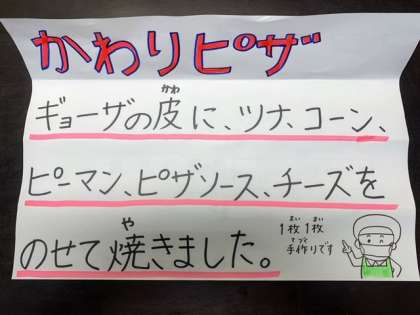 かわりピザ
ギョーザの皮に、ツナ、コーン、
かわ
ピーマン、ピザソース、チーズを
のせて焼きました。
や
1枚1枚
まい まい
手作りです
てづく